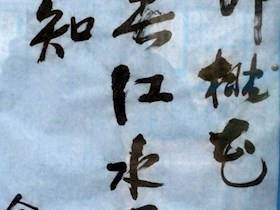 外桃花
春江水
知